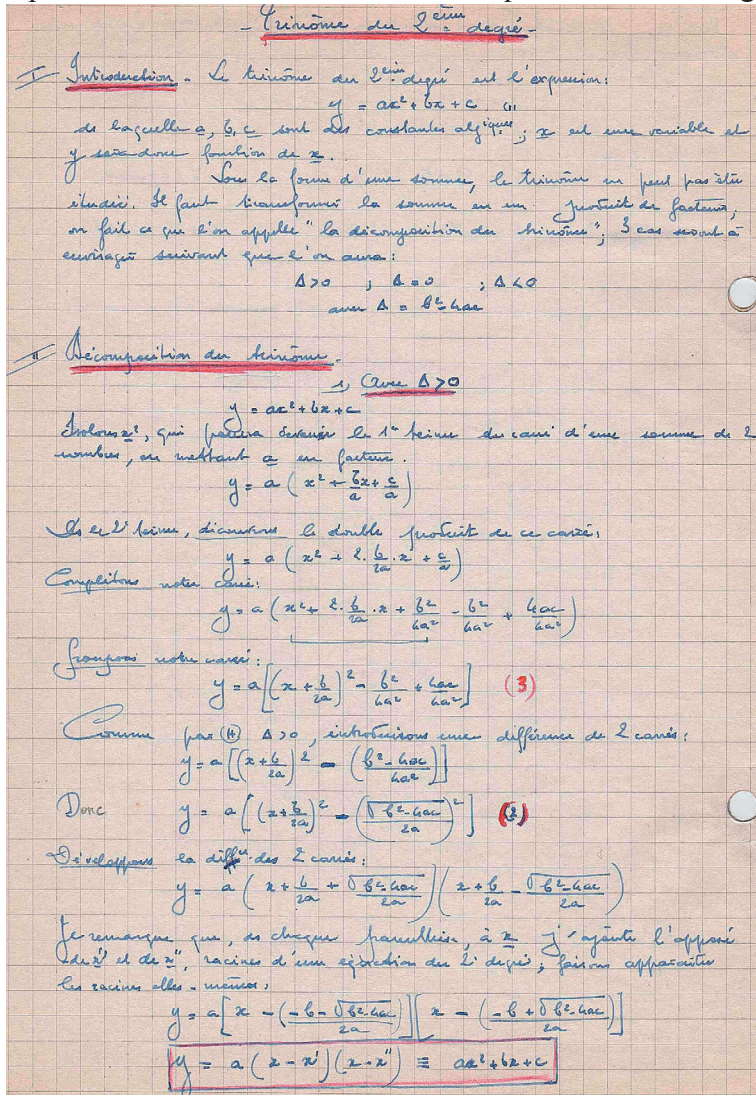 - Trinôme du 2ème degré -
I Introduction - Le trinôme du 2ème degré est l'expression:
y = ax² + bx + c (1)
ds laquelle a, b, c sont des constantes algiques; x est une variable et
y sera donc fonction de x.
Sous la forme d'une somme, le trinôme ne peut pas être
étudié. Il faut transformer la somme en un produit de facteurs,
on fait ce que l'on appelle "la décomposition du trinôme"; 3 cas seront à
envisager suivant que l'on aura:
Δ>0 ; Δ=0 ; Δ<0
avec Δ = b²-4ac
II Décomposition du trinôme.
1) Avec Δ>0
y = ax² + bx + c
Isolons x², qui pourra devenir le 1er terme du carré d'une somme de 2
nombres, en mettant a en facteur.
y = a (x² + bx/a + c/a)
Ds le 2e terme, découvrons le double produit de ce carré:
y = a (x² + 2. b/2a . x + c/a)
Complétons notre carré:
y = a (x² + 2. b/2a . x + b²/4a² - b²/4a² + 4ac/4a²)
Groupons notre carré:
y = a [(x + b/2a)² - b²/4a² + 4ac/4a²] (3)
Comme par (H) Δ>0, introduisons une différence de 2 carrés:
y = a [(x + b/2a)² - (b²-4ac/4a²)]
Donc y = a [(x + b/2a)² - (√b²-4ac/2a)²] (2)
Développons la diffce des 2 carrés:
y = a (x + b/2a + √b²-4ac/2a) (x + b/2a - √b²-4ac/2a)
Je remarque que, ds chaque parenthèse, à x j'ajoute l'opposé
de x' et de x'', racines d'une équation du 2e degré; faisons apparaître
les racines elles-mêmes:
y = a [x - (-b-√b²-4ac/2a)] [x - (-b+√b²-4ac/2a)]
y = a (x-x') (x-x'') ≡ ax² + bx + c